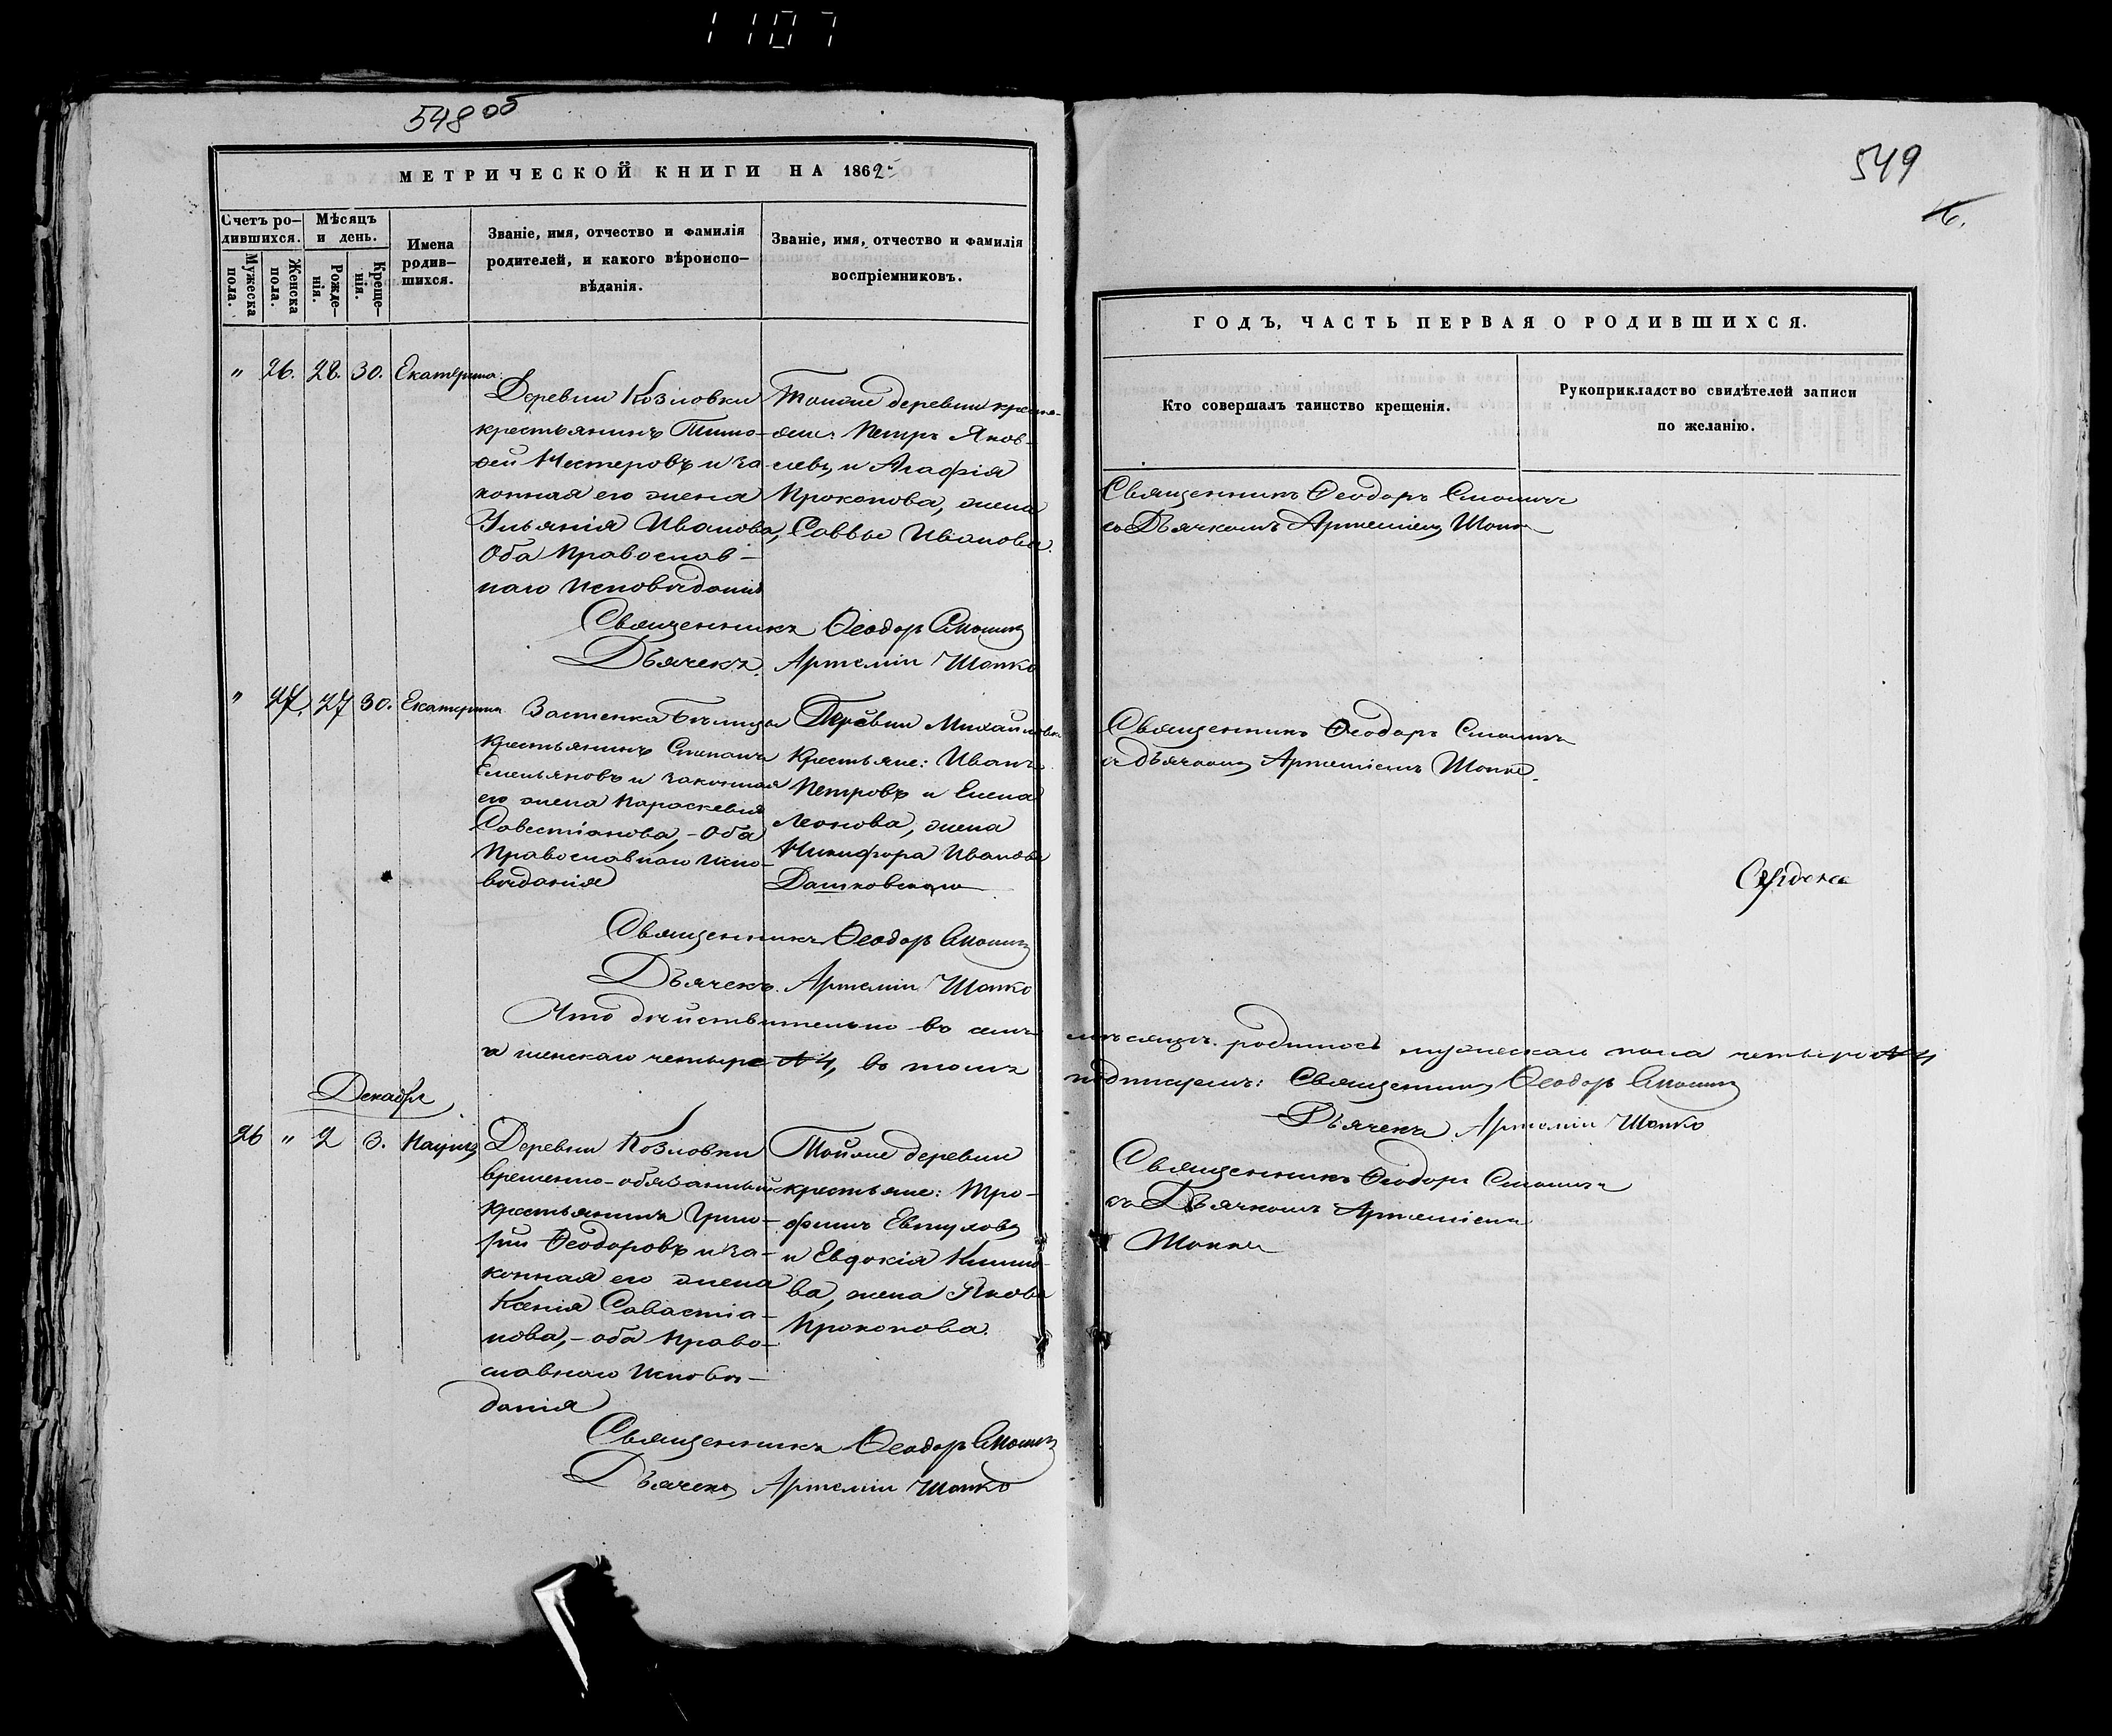 1107
548 об
МЕТРИЧЕСКОЙ КНИГИ НА 1862
Счетъ ро-
дившихся.
Мужеска
пола.
Женска
пола.
Мѣсяцъ
и день.
Рожде-
нія.
Креще-
нія.
Имена
родив-
шихся.
Званіе, имя, отчество и фамилія
родителей, и какого вѣроиспо-
вѣданія.
Званіе, имя, отчество и фамилія
воспріемниковъ.
" 26. 28. 30. Екатерина.
Деревни Козловки
крестьянинъ Тимо-
ѳей Нестеровъ и за-
конная его жена
Ульянія Иванова,
Оба Православ-
наго Исповѣданія
Тойже деревни кресть-
яне: Петръ Яков-
левъ и Агафія
Прокопова, жена
Саввы Иванова.
Священникъ Ѳеодоръ
Дьячекъ Артемій Шопко
" 27. 27 30. Екатерина
Застенка
крестьянинъ Степанъ
Емельяновъ и законная
его жена Параскевія
Савостіанова, - Оба
Православнаго Испо-
вѣданія
Деревни Михайловки
Крестьяне: Иванъ
Петровъ и Елена
Леонова, жена
Никифора Иванова
Дашковскаго
Священникъ Ѳеодоръ
Дьячекъ. Артемій Шопко
Что дѣйствительно въ семъ
и женскаго четыре № 4, въ томъ
Декабрь
26 " 2 3. Наумъ
Деревни Козловки
временно-обязанный
крестьянинъ Григо-
рій Ѳеодоровъ и за-
конная его жена
Ксенія Савастіа-
нова, - оба Право-
славнаго Исповѣ-
данія
Тойже деревни
крестьяне: Тро-
фимъ
и Евдокія
ва, жена Якова
Прокопова.
Священникъ Ѳеодоръ
Дьячекъ Артемій Шопко
549
16.
ГОДЪ, ЧАСТЬ ПЕРВАЯ О РОДИВШИХСЯ.
Кто совершалъ таинство крещенія.
Рукоприкладство свидѣтелей записи
по желанію.
Священникъ Ѳеодоръ
съ Дьячкомъ Артеміемъ
Священникъ Ѳеодоръ
съ дьячкомъ Артеміемъ
мѣсяцѣ родилось мужескаго пола четыре № 4
подписуемъ: Священникъ Ѳеодоръ
Дьячекъ Артемій Шопко
Священникъ Ѳеодоръ
съ Дьячкомъ Артеміемъ